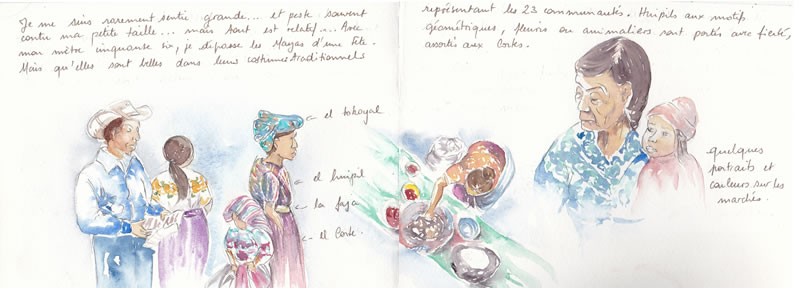 Je me suis rarement sentie grande... et peste souvent
contre ma petite taille... mais tout est relatif... Avec
mon mètre cinquante six, je dépasse les Mayas d'une tête.
Mais qu'elles sont belles dans leurs costumes traditionnels
représentant les 23 communautés. Huipils aux motifs
géométriques, fleuris ou animaliers sont portés avec fierté,
assortis aux Cortes.
el tokoyal
el huipil
la faja
el Corte.
quelques
portraits et
couleurs sur les
marchés.